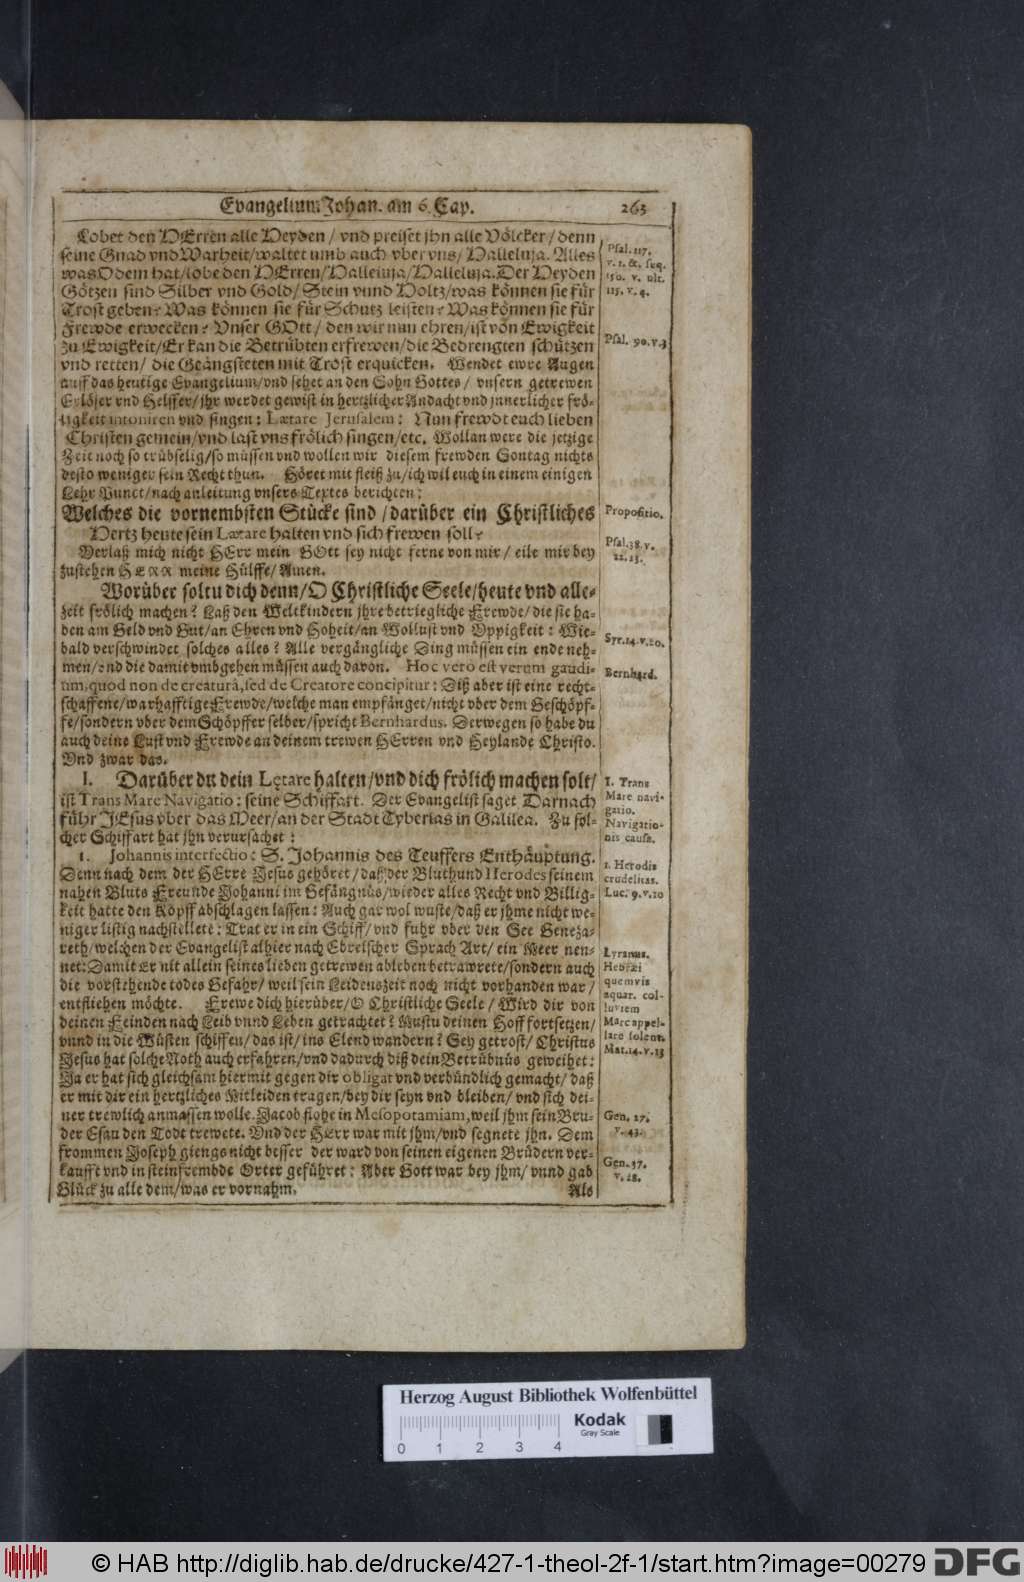 Evangelium Johan. am 6. Cap. 263
Lobet den HErren alle Heyden / vnd preiset jhn alle Völcker / denn
seine Gnad vnd Warheit / waltet umb auch vber vns / Halleluja. Alles
was Odem hat / lobe den HErren / Halleluja / Halleluja. Der Heyden
Götzen sind Silber vnd Gold / Stein vnnd Holtz / was können sie für
Trost geben? Was können sie für Schutz leisten? Was können sie für
Frewde erwecken? Vnser GOtt / den wir nun ehren / ist von Ewigkeit
zu Ewigkeit / Er kan die Betrübten erfrewen / die Bedrengten schützen
vnd retten / die Geängsteten mit Trost erquicken. Wendet ewre Augen
auff das heutige Evangelium / vnd sehet an den Sohn Gottes / vnsern getrewen
Erlöser vnd Helffer / jhr werdet gewist in hertzlicher Andacht vnd jnnerlicher frö-
ligkeit intoniren vnd singen: Lætare Jerusalem: Nun frewdt euch lieben
Christen gemein / vnd last vns frölich singen / etc. Wollan were die jetzige
Zeit noch so trübselig / so müssen vnd wollen wir diesem frewden Sontag nichts
desto weniger sein Recht thun. Höret mit fleiß zu / ich wil euch in einem einigen
Lehr Punct / nach anleitung vnsers Textes berichten:
Welches die vornembsten Stücke sind / darüber ein Christliches
Hertz heute sein Lætare halten vnd sich frewen soll?
Verlaß mich nicht HErr mein GOtt sey nicht ferne von mir / eile mir bey
zustehen HERR meine Hülffe / Amen.
Worüber soltu dich denn / O Christliche Seele / heute vnd alle-
zeit frölich machen? Laß den Weltkindern jhre betriegliche Frewde / die sie ha-
ben am Geld vnd Gut / an Ehren vnd Hoheit / an Wollust vnd Vppigkeit: Wie-
bald verschwindet solches alles? Alle vergängliche Ding müssen ein ende neh-
men / vnd die damit vmbgehen müssen auch davon. Hoc vero est verum gaudi-
um, quod non de creaturâ, sed de Creatore concipitur: Diß aber ist eine recht-
schaffene / warhafftige Frewde / welche man empfänget / nicht vber dem Geschöpf-
fe / sondern vber dem Schöpffer selber / spricht Bernhardus. Derwegen so habe du
auch deine Lust vnd Frewde an deinem trewen HErren vnd Heylande Christo.
Vnd zwar das.
I. Darüber du dein Lętare halten / vnd dich frölich machen solt /
ist Trans Mare Navigatio: seine Schiffart. Der Evangelist saget Darnach
führ JEsus vber das Meer / an der Stadt Tyberias in Galilea. Zu sol-
cher Schiffart hat jhn verursachet:
1. Johannis interfectio: S. Johannis des Teuffers Enthäuptung.
Denn nach dem der HErre Jesus gehöret / daß der Bluthund Herodes seinem
nahen Bluts Freunde Johanni im Gefängnüs / wieder alles Recht vnd Billig-
keit hatte den Kopff abschlagen lassen: Auch gar wol wuste / daß er jhme nicht we-
niger listig nachstellete: Trat er in ein Schiff / vnd fuhr vber den See Geneza-
reth / welchen der Evangelist alhier nach Ebreischer Sprach Art / ein Meer nen-
net: Damit er nit allein seines lieben getrewen ableben betrawrete / sondern auch
die vorstehende todes Gefahr / weil sein Leidenszeit noch nicht vorhanden war /
entfliehen möchte. Frewe dich hierüber / O Christliche Seele / Wird dir von
deinen Feinden nach Leib vnnd Leben getrachtet? Mustu deinen Hoff fortsetzen /
vnnd in die Wüsten schiffen / das ist / ins Elend wandern? Sey getrost / Christus
Jesus hat solche Noth auch erfahren / vnd dadurch diß dein Betrübnüs geweihet:
Ja er hat sich gleichsam hiermit gegen dir obligat vnd verbündlich gemacht / daß
er mit dir ein hertzliches Mitleiden tragen / bey dir seyn vnd bleiben / vnd sich dei-
ner trewlich anmassen wolle. Jacob flohe in Mesopotamiam, weil jhm sein Bru-
der Esau den Todt trewete. Vnd der HErr war mit jhm / vnd segnete jhn. Dem
frommen Joseph giengs nicht besser der ward von seinen eigenen Brüdern ver-
kaufft vnd in stein frembde Örter geführet: Aber Gott war bey jhm / vnnd gab
Glück zu alle dem / was er vornahm. Als
Psal. 117.
v. 1. &. seq.
150. v. ult.
115. v. 4.
Psal. 90. v. 3
Propositio.
Psal. 38. v.
22. 23.
Syr. 14. v. 20.
Bernhard.
I. Trans
Mare navi-
gatio.
Navigatio-
nis causæ.
1. Herodis
crudelitas.
Luc. 9. v. 10
Lyranus.
Hebræi
quemvis
aquar. col-
luviem
Mare appel-
lare solent.
Mat. 14. v. 13
Gen. 27.
v. 43.
Gen. 37.
v. 28.
Herzog August Bibliothek Wolfenbüttel
0 1 2 3 4
Kodak
Gray Scale
© HAB http://diglib.hab.de/drucke/427-1-theol-2f-1/start.htm?image=00279 DFG